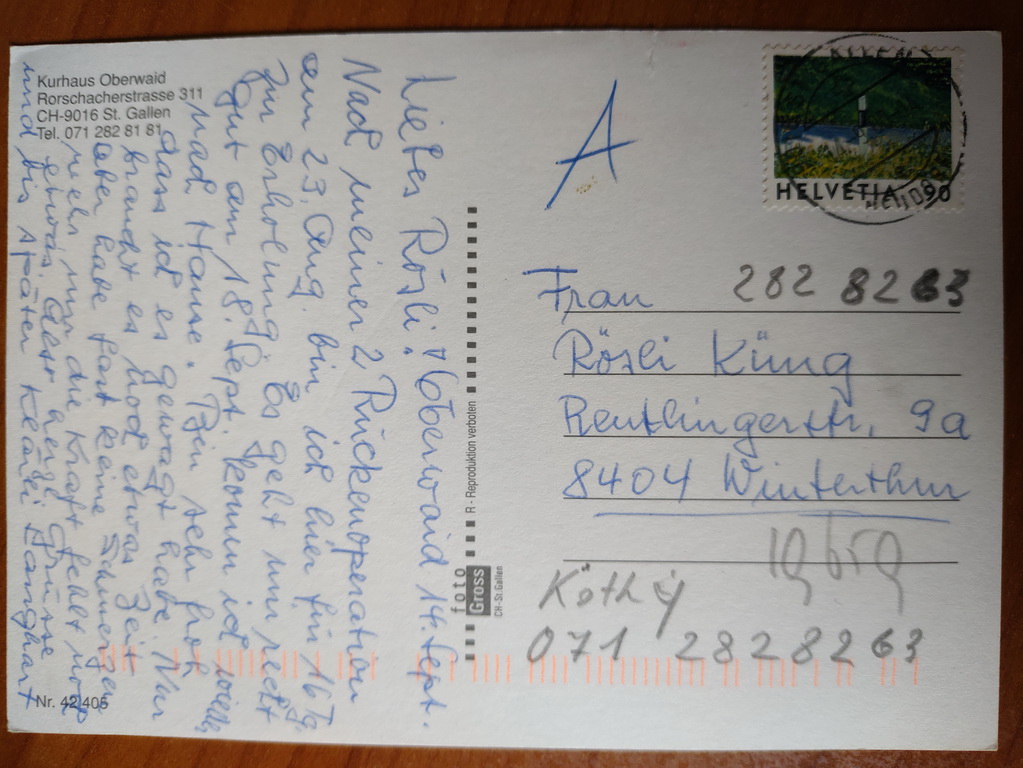 Kurhaus Oberwaid
Rorschacherstrasse 311
CH-9016 St. Gallen
Tel. 071 282 81 81
Oberwaid 14. Sept.
Liebes Rösli!
Nach meiner 2. Rückenoperation
am 23. Aug. bin ich hier für 16 Tg.
zur Erholung. Es geht mir recht
gut am 18. Sept. komm ich wieder
nach Hause. Bin sehr froh
dass ich es gewagt habe. Nur
braucht es noch etwas Zeit
aber habe fast keine Schmerzen
mehr nur die Kraft fehlt noch
etwas. Also herzl. Grüsse
und bis später Kläri Langhart
Nr. 42 405
foto
Gross
CH-St. Gallen
R - Reproduktion verboten
A
HELVETIA 90
Frau
282 82 63
Rösli Küng
Reutlingerstr. 9a
8404 Winterthur
Käthy
071 282 82 63